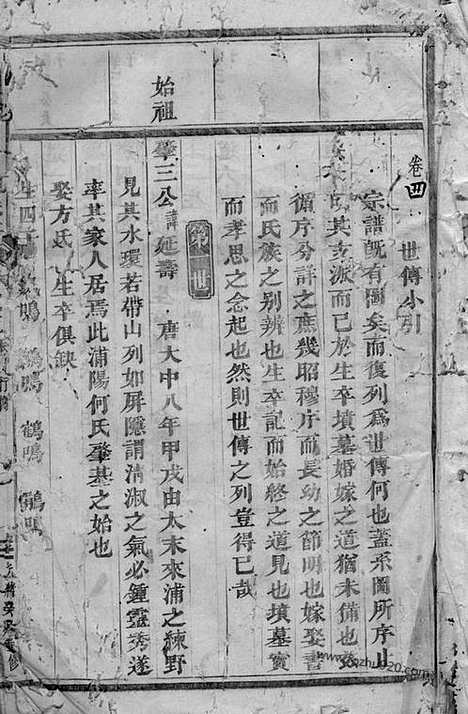 卷四
世傳小引
宗譜旣有圖矣而復列爲世傳何也蓋系圖所序止
其支派而已於生卒墳墓婚嫁之道猶未備也
循序分詳之庶幾昭穆序而長幼之節明也嫁娶書
而氏族之别辨也生卒記而始終之道見也墳墓
而孝思之念起也然則世傳之列豈得已哉
第一世
始祖
肇三公諱延壽 唐大中八年甲戌由太末來浦之練野
見其水環若帶山列如屏隱謂清淑之氣必鍾靈秀遂
率其家人居焉此浦陽何氏肇基之始也
娶方氏 生卒俱缺
生四子 鳴 鳴 鶴鳴 鳴